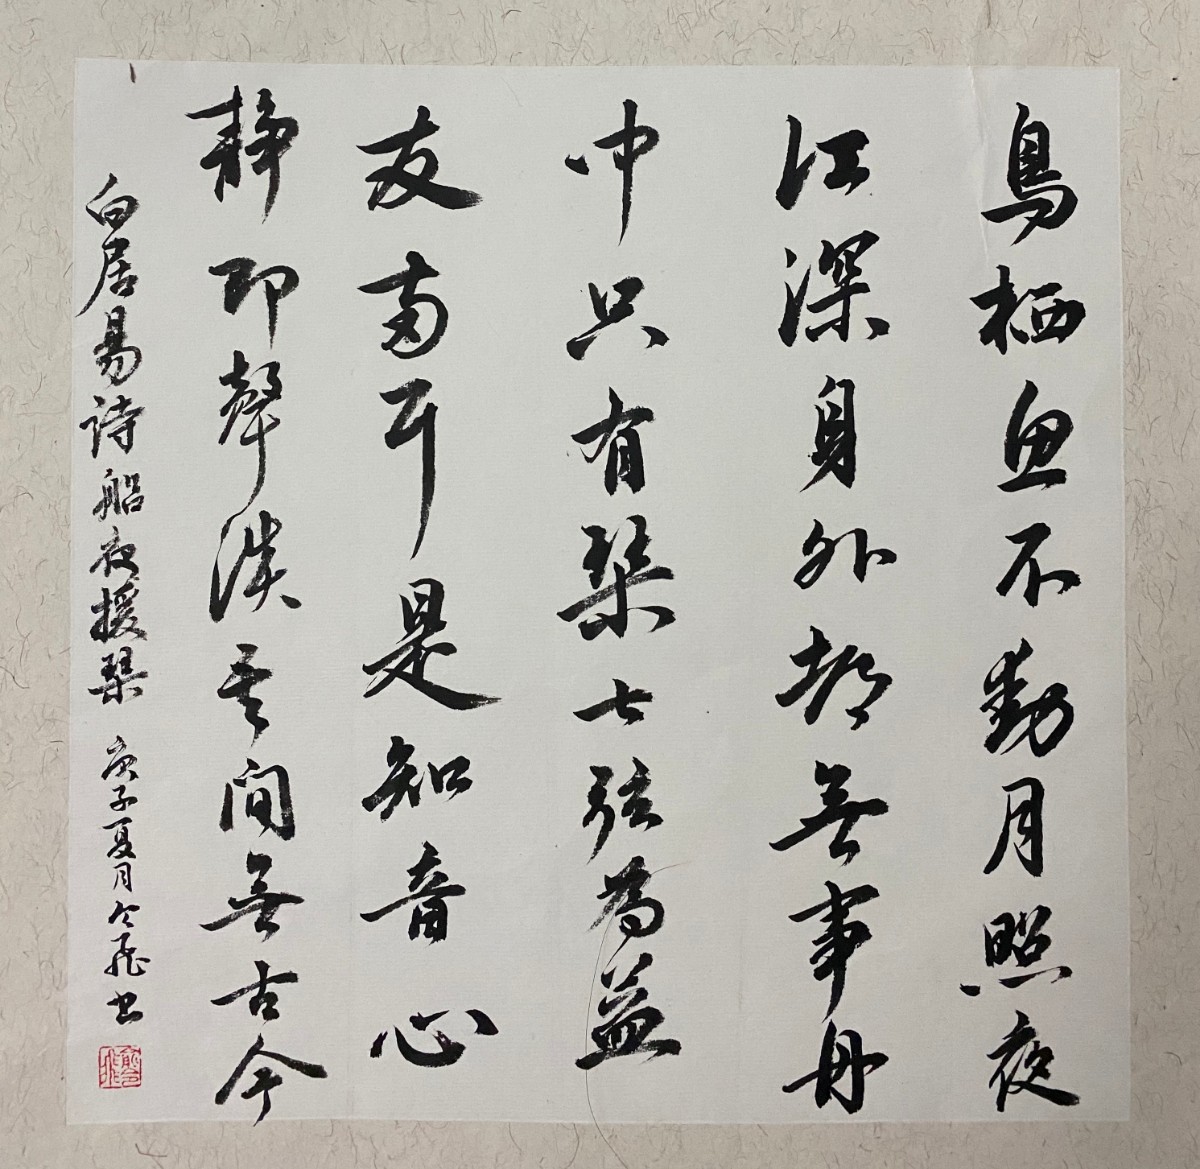 鳥栖魚不動月照夜
江深身外都無事舟
中只有琴七弦為益
友兩耳是知音心
靜即聲淡其間無古今
白居易詩船夜援琴 庚子夏月令飛书